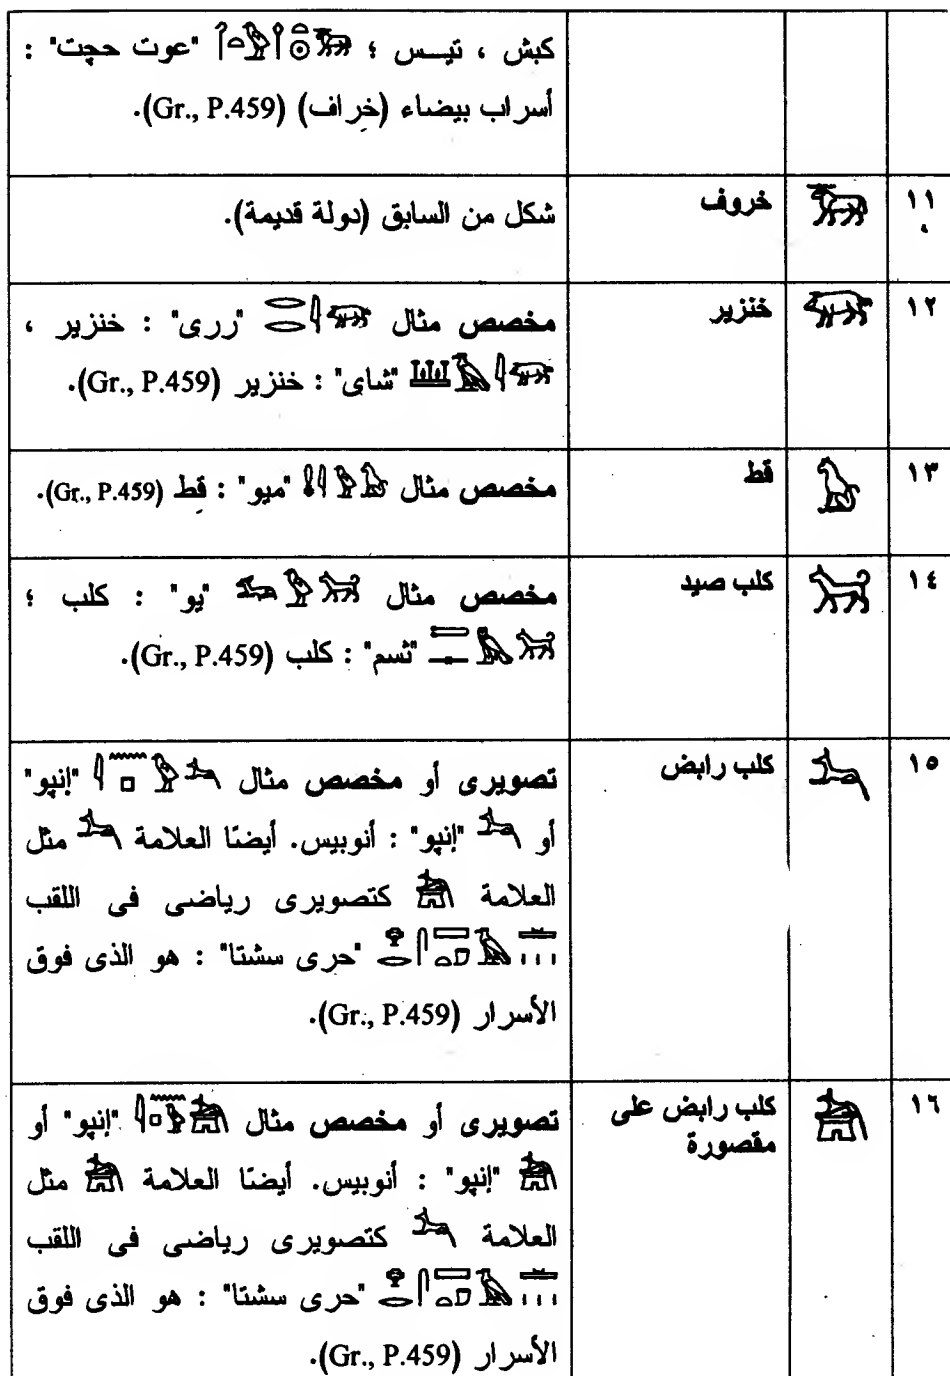 كبش ، تيس ؛ "عوت حچت" :
أسراب بيضاء (خراف) (Gr., P.459).
١١
خروف
شكل من السابق (دولة قديمة).
١٢
خنزير
مخصص مثال "ررى" : خنزير ،
"شاى" : خنزير (Gr., P.459).
١٣
قط
مخصص مثال "ميو" : قط (Gr., P.459).
١٤
كلب صيد
مخصص مثال "يو" : كلب ؛
"ثسم" : كلب (Gr., P.459).
١٥
كلب رابض
تصويرى أو مخصص مثال "إنپو"
أو "إنپو" : أنوبيس. أيضًا العلامة مثل
العلامة كتصويرى رياضى فى اللقب
"حرى سشتا" : هو الذى فوق
الأسرار (Gr., P.459).
١٦
كلب رابض على
مقصورة
تصويرى أو مخصص مثال "إنپو" أو
"إنپو" : أنوبيس. أيضًا العلامة مثل
العلامة كتصويرى رياضى فى اللقب
"حرى سشتا" : هو الذى فوق
الأسرار (Gr., P.459).